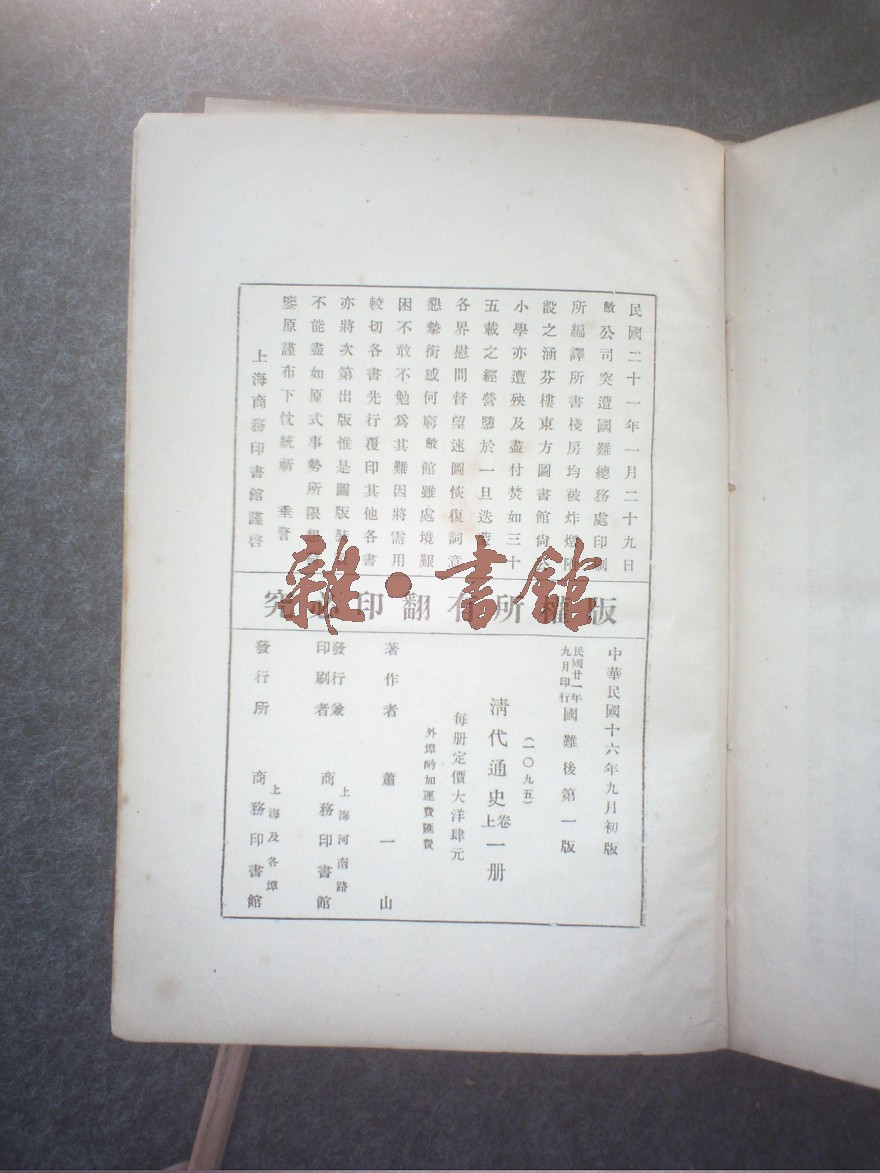 民國二十一年一月二十九日
敝公司突遭國難總務處印刷
所編譯所書棧房均被炸燬附
設之涵芬樓東方圖書館尙公
小學亦遭殃及盡付焚如三十
五載之經營隳於一旦迭蒙
各界慰問督望速圖恢復詞意
懇摯銜感何窮敝館雖處境艱
困不敢不勉爲其難因將需用
較切各書先行覆印其他各書
亦將次第出版惟是圖版裝
不能盡如原式事勢所限想
鑒原謹布下忱統祈 垂詧
上海商務印書館謹啓
版權所有翻印必究
中華民國十六年九月初版
民國廿一年九月印行國難後第一版
(一〇九五)
淸代通史卷上一册
每册定價大洋肆元
外埠酌加運費匯費
著作者 蕭一山
發行兼印刷者 上海河南路 商務印書館
發行所 上海及各埠 商務印書館
雜·書館